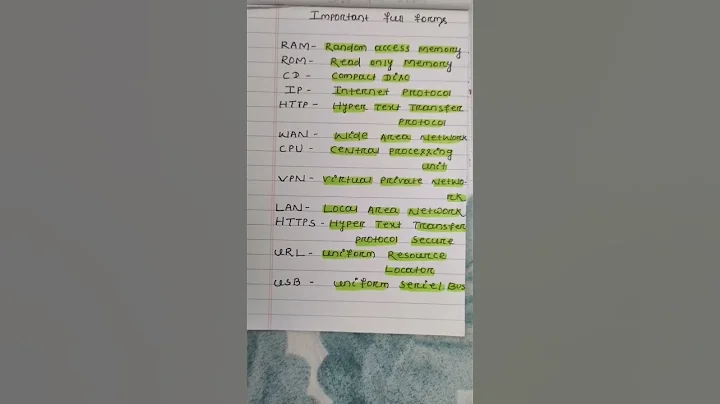 Important full forms
RAM - Random access Memory
ROM - Read only Memory
CD - Compact Disc
IP - Internet Protocol
HTTP - Hyper Text Transfer
Protocol
WAN - Wide Area Network
CPU - Central Processing
Unit
VPN - Virtual Private Netwo-
rk
LAN - Local Area Network
HTTPS - Hyper Text Transfer
Protocol Secure
URL - Uniform Resource
Locator
USB - Uniform Seriel Bus